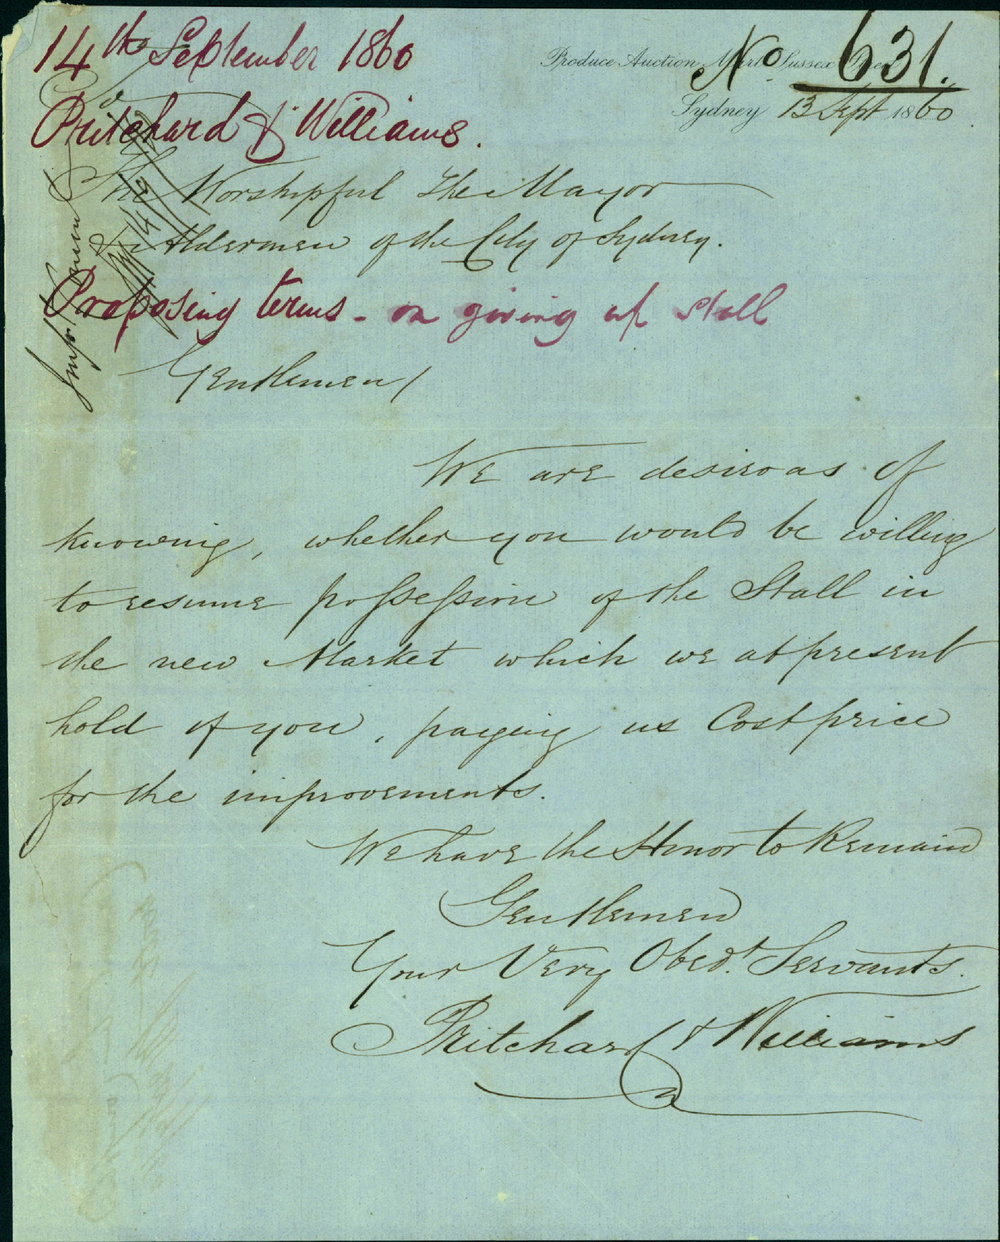 14th September 1860
No 631.
Produce Auction Mart Sussex Street
Sydney 13 Sept 1860
Pritchard & Williams.
The Worshipful The Mayor
& Aldermen of the City of Sydney.
Proposing terms - on giving up stall
Gentlemen
We are desirous of
knowing, whether you would be willing
to resume possession of the Stall in
the new Market which we at present
hold of you, paying us Cost price
for the improvements.
We have the Honor to Remain
Gentlemen
Your Very Obedt. Servants.
Pritchard & Williams